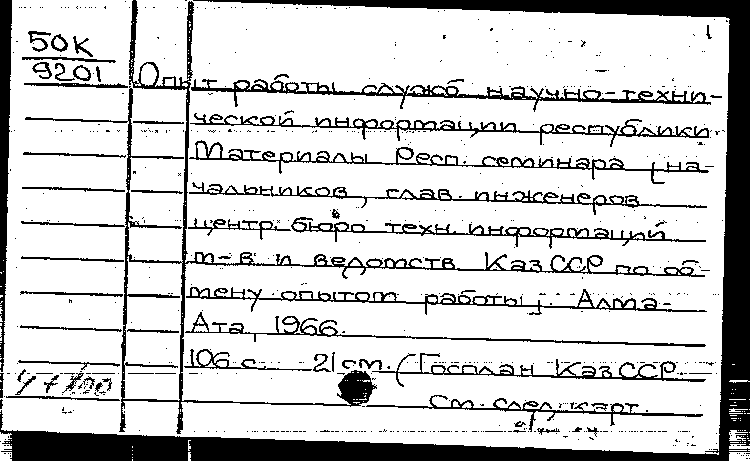 1
50К
9201
Опыт работы служб научно-техни-
ческой информации республики.
Материалы Респ. семинара [на-
чальников, глав. инженеров
центр. бюро техн. информаций
м-в и ведомств КазССР по об-
мену опытом работы]. Алма-
Ата, 1966.
106 с. 21 см. (Госплан КазССР.
См. след. карт.